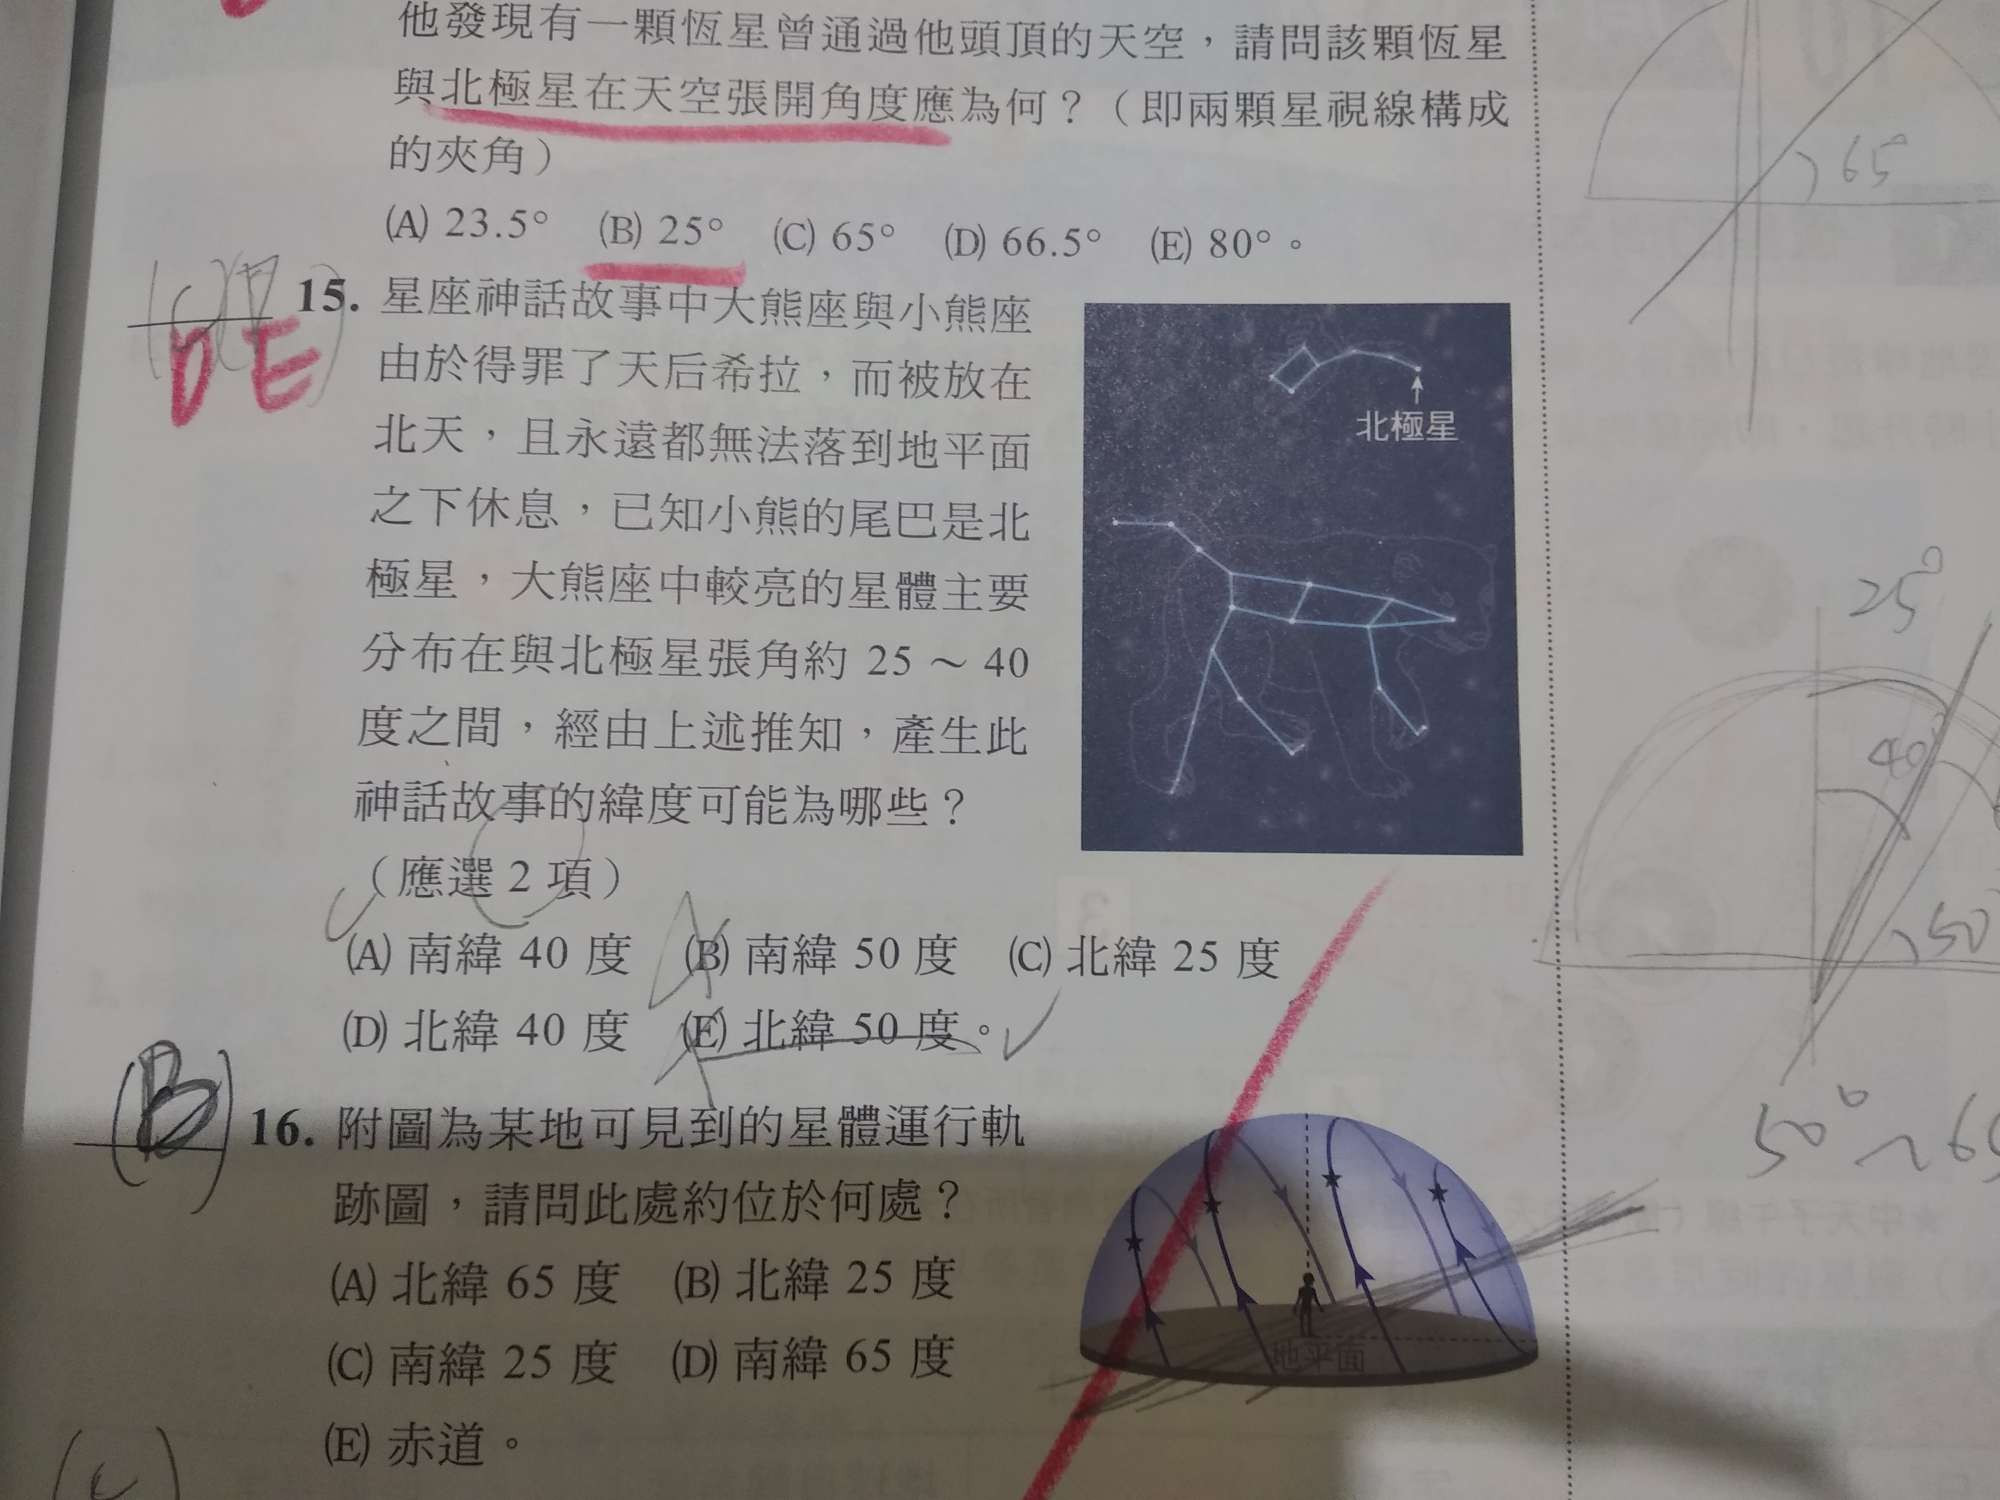 他發現有一顆恆星曾通過他頭頂的天空，請問該顆恆星
與北極星在天空張開角度應為何？（即兩顆星視線構成
的夾角）
(A) 23.5° (B) 25° (C) 65° (D) 66.5° (E) 80°。
65°
DE
15. 星座神話故事中大熊座與小熊座
由於得罪了天后希拉，而被放在
北天，且永遠都無法落到地平面
之下休息，已知小熊的尾巴是北
極星，大熊座中較亮的星體主要
分布在與北極星張角約 25～40
度之間，經由上述推知，產生此
神話故事的緯度可能為哪些？
（應選 2 項）
北極星
(A) 南緯 40 度 (B) 南緯 50 度 (C) 北緯 25 度
(D) 北緯 40 度 (E) 北緯 50 度。
25°
40°
50
50°～65
(B)
16. 附圖為某地可見到的星體運行軌
跡圖，請問此處約位於何處？
(A) 北緯 65 度 (B) 北緯 25 度
(C) 南緯 25 度 (D) 南緯 65 度
(E) 赤道。
地平面